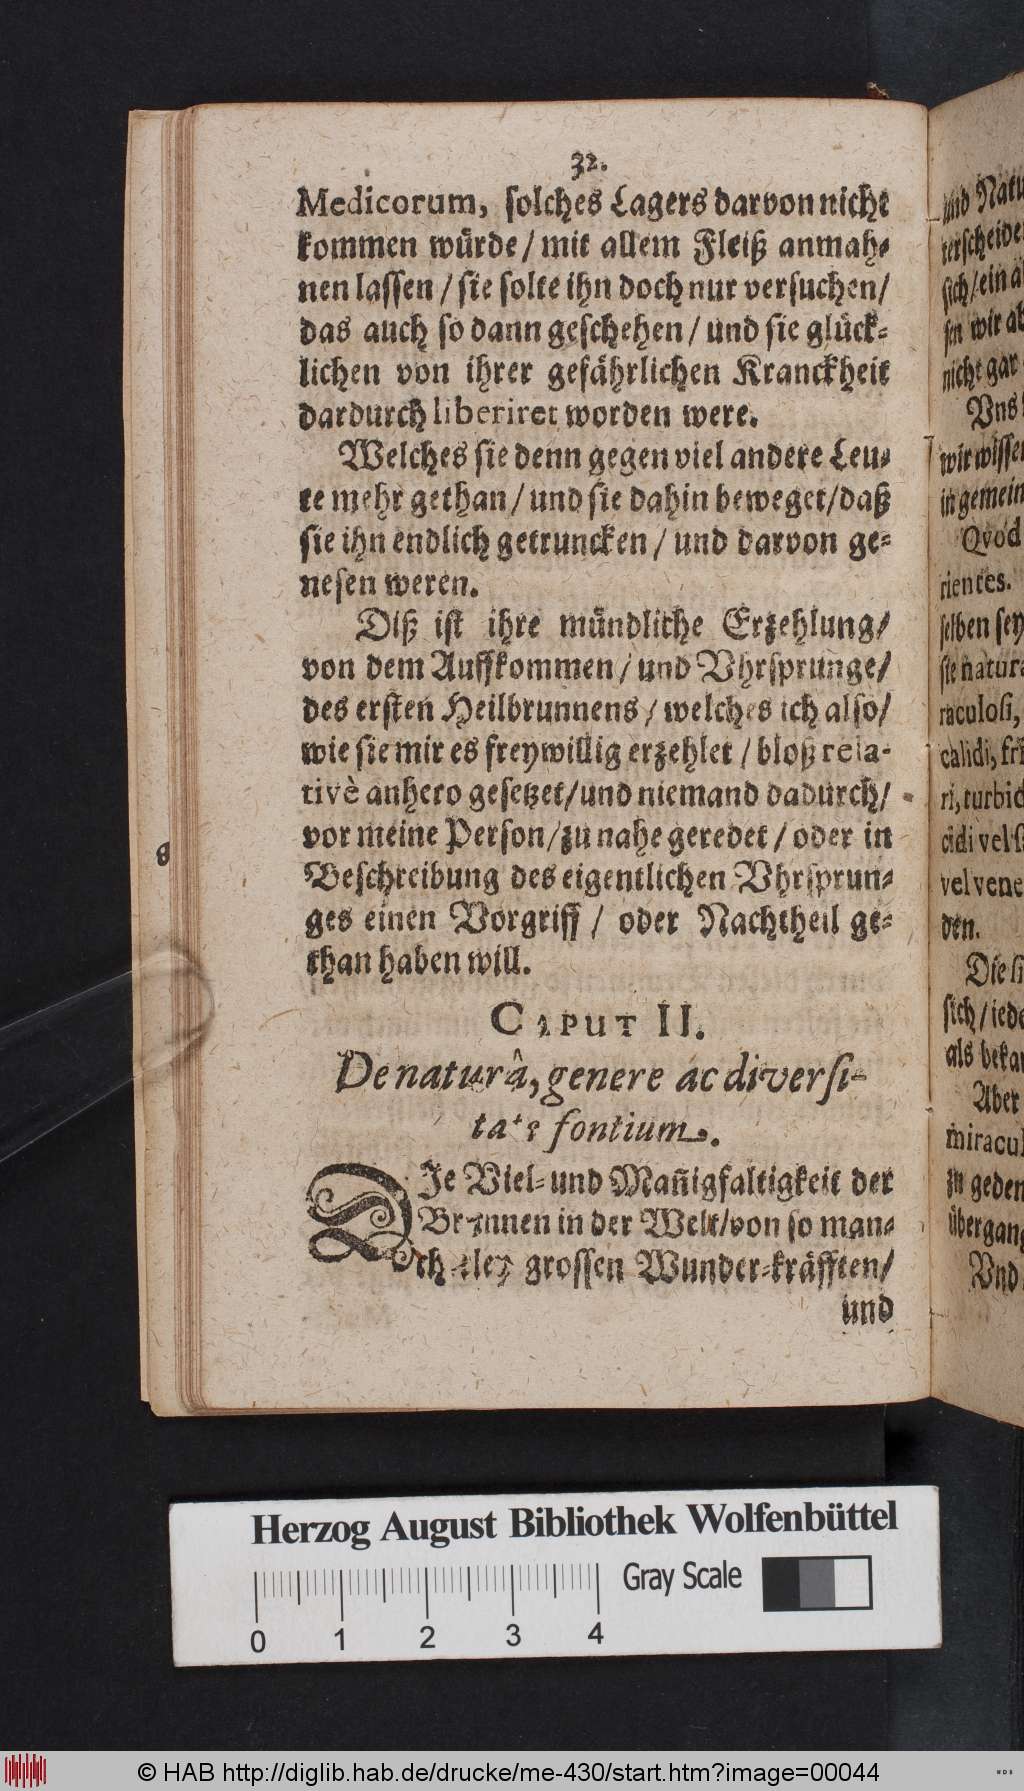 32.
Medicorum, solches Lagers darvon nicht
kommen würde / mit allem Fleiß anmah-
nen lassen / sie solte ihn doch nur versuchen /
das auch so dann geschehen / und sie glück-
lichen von ihrer gefährlichen Kranckheit
dardurch liberiret worden were.
Welches sie denn gegen viel andere Leu-
te mehr gethan / und sie dahin beweget / daß
sie ihn endlich getruncken / und darvon ge-
nesen weren.
Diß ist ihre mündliche Erzehlung /
von dem Auffkommen / und Vhrsprunge /
des ersten Heilbrunnens / welches ich also /
wie sie mir es freywillig erzehlet / bloß rela-
tivè anhero gesetzet / und niemand dadurch /
vor meine Person / zu nahe geredet / oder in
Beschreibung des eigentlichen Vhrsprun-
ges einen Vorgriff / oder Nachtheil ge-
than haben will.
CAPUT II.
De naturâ, genere ac diversi-
tate fontium.
DIe Viel- und Mañigfaltigkeit der
Brunnen in der Welt / von so man-
cherley grossen Wunder-kräfften /
und
und Natu
sich / ein a
sen wir ab
nicht gar
Vns
wir wisse
in gemein
Qvod
rientes.
selben sey
sie natura
raculosi,
calidi, fri
ri, turbid
cidi vel s
vel vene
den.
Die
sich / iede
als bekan
Aber
miracul
zu geden
übergang
Vnd
Herzog August Bibliothek Wolfenbüttel
Gray Scale
0 1 2 3 4
© HAB http://diglib.hab.de/drucke/me-430/start.htm?image=00044